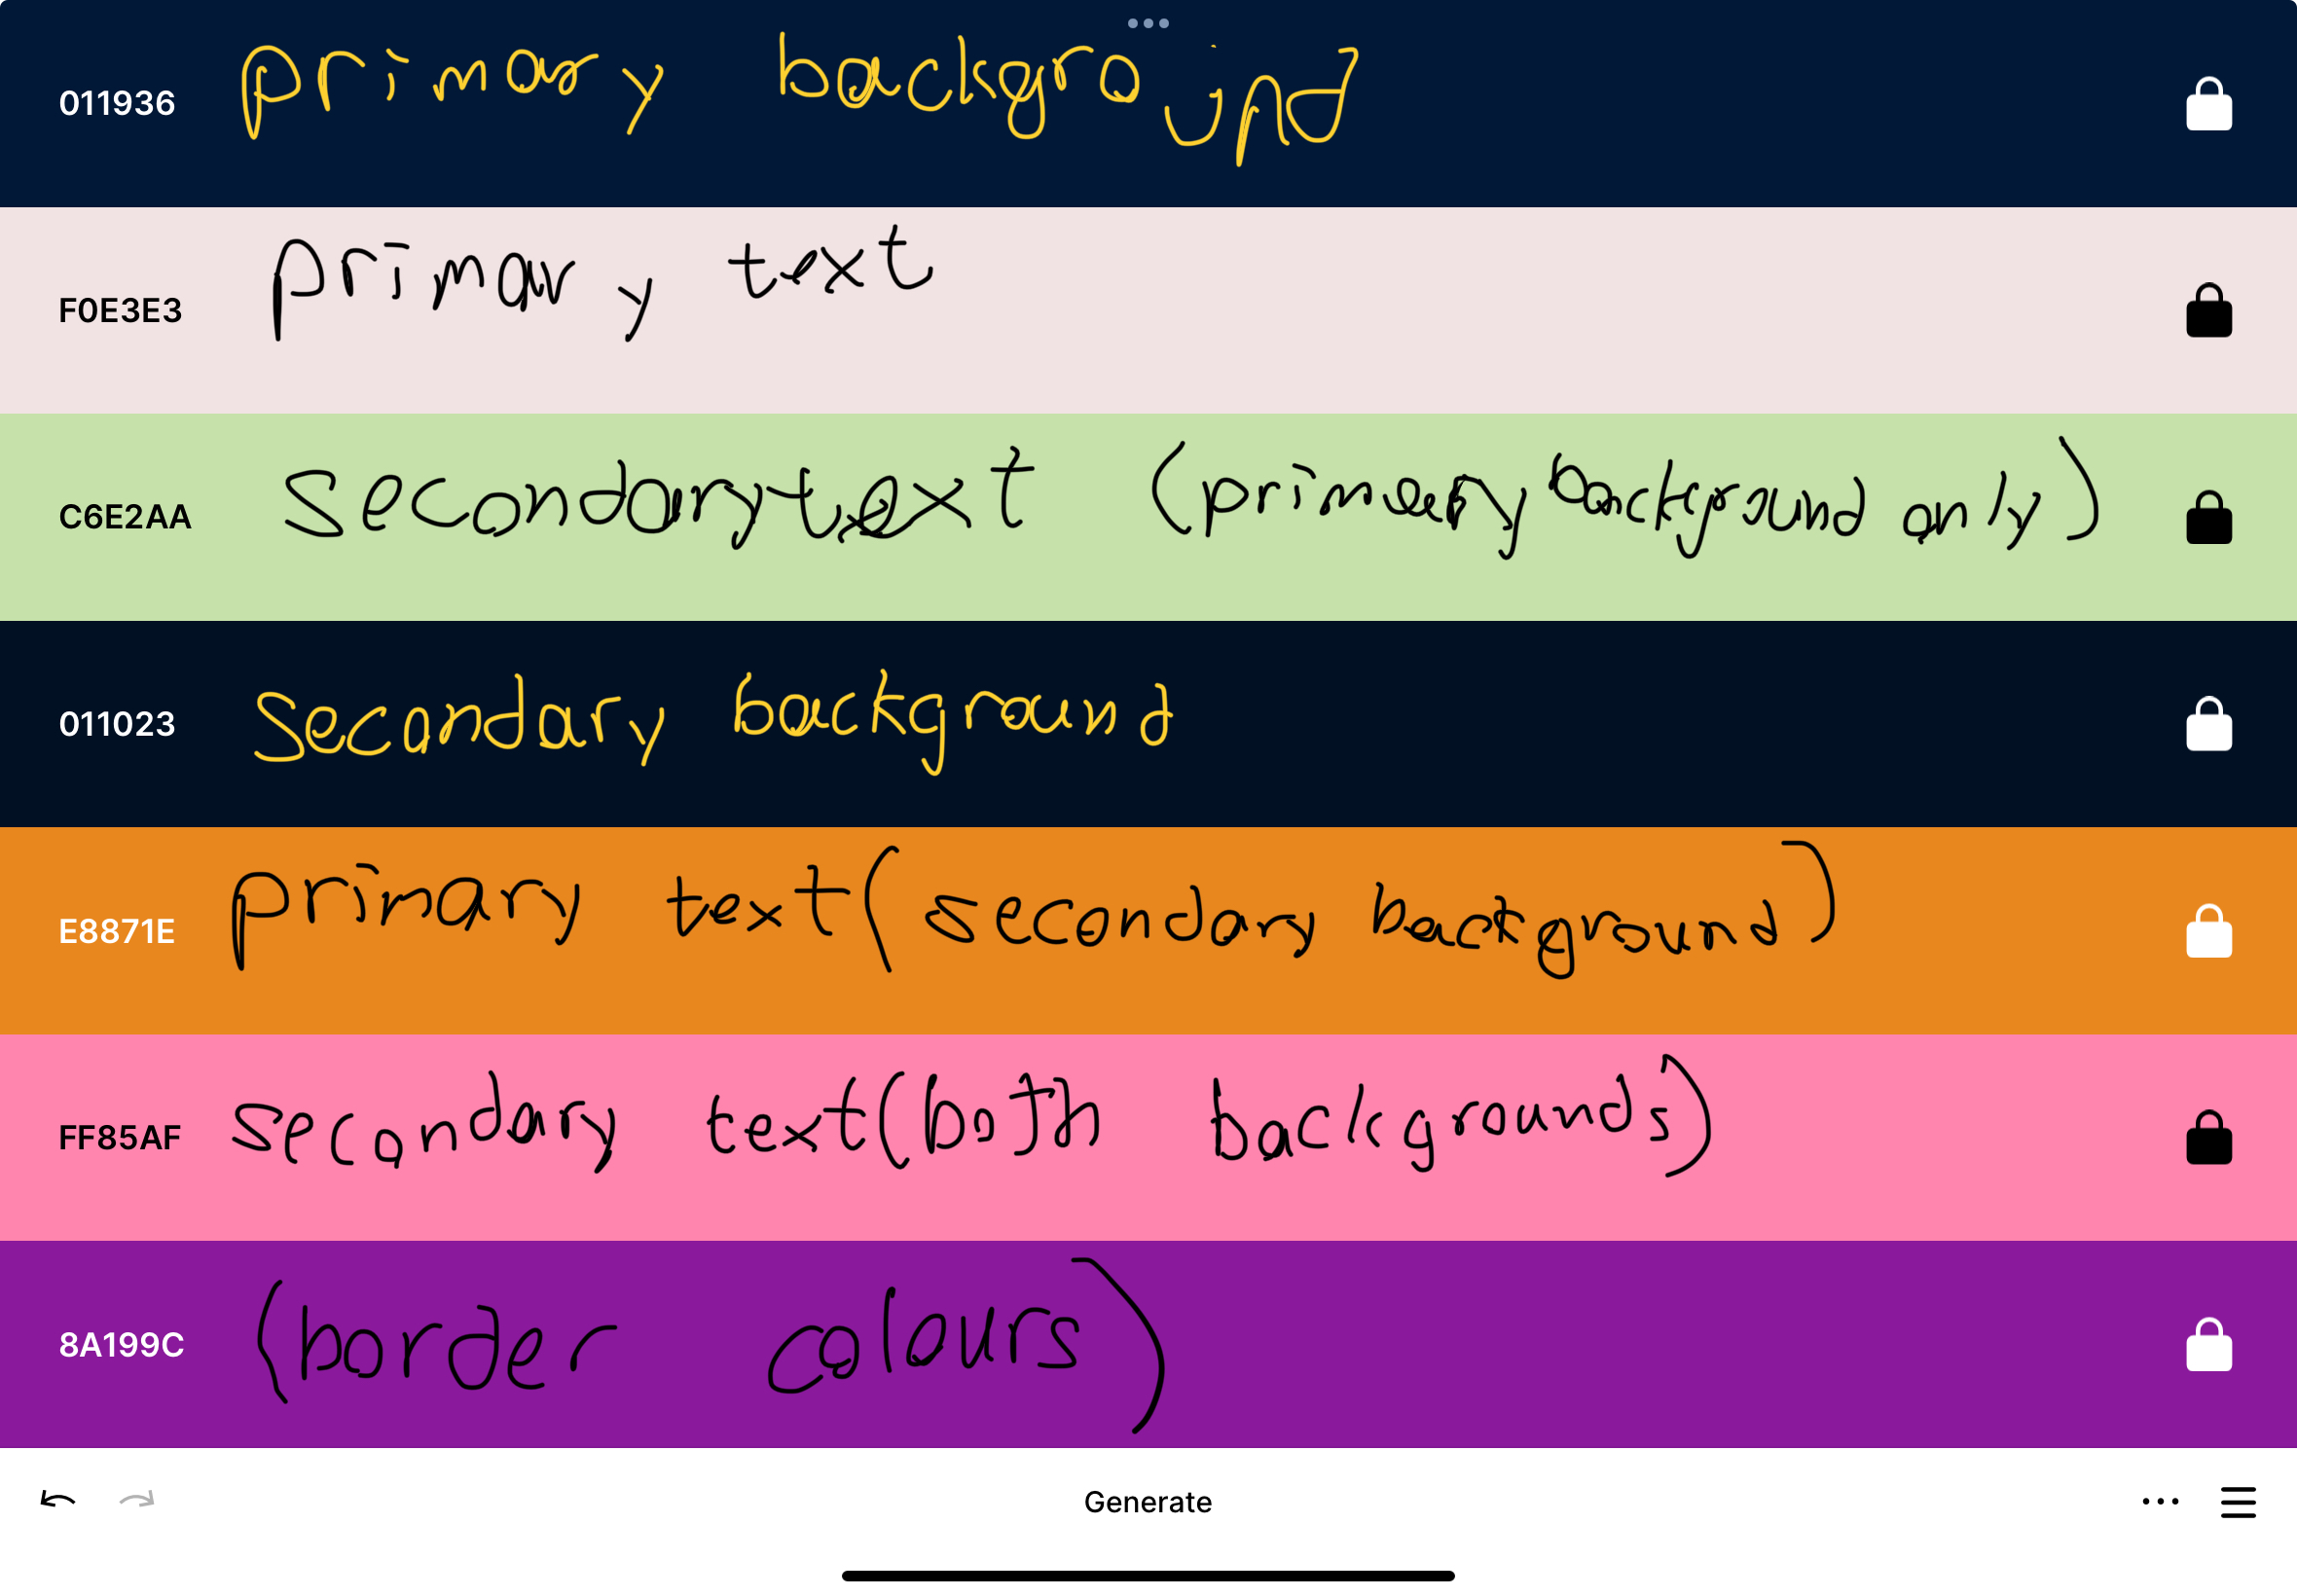 011936 primary background
F0E3E3 primary text
C6E2AA secondary text (primary background only)
011023 secondary background
E8871E primary text (secondary background)
FF85AF secondary text (both backgrounds)
8A199C (border colours)
Generate